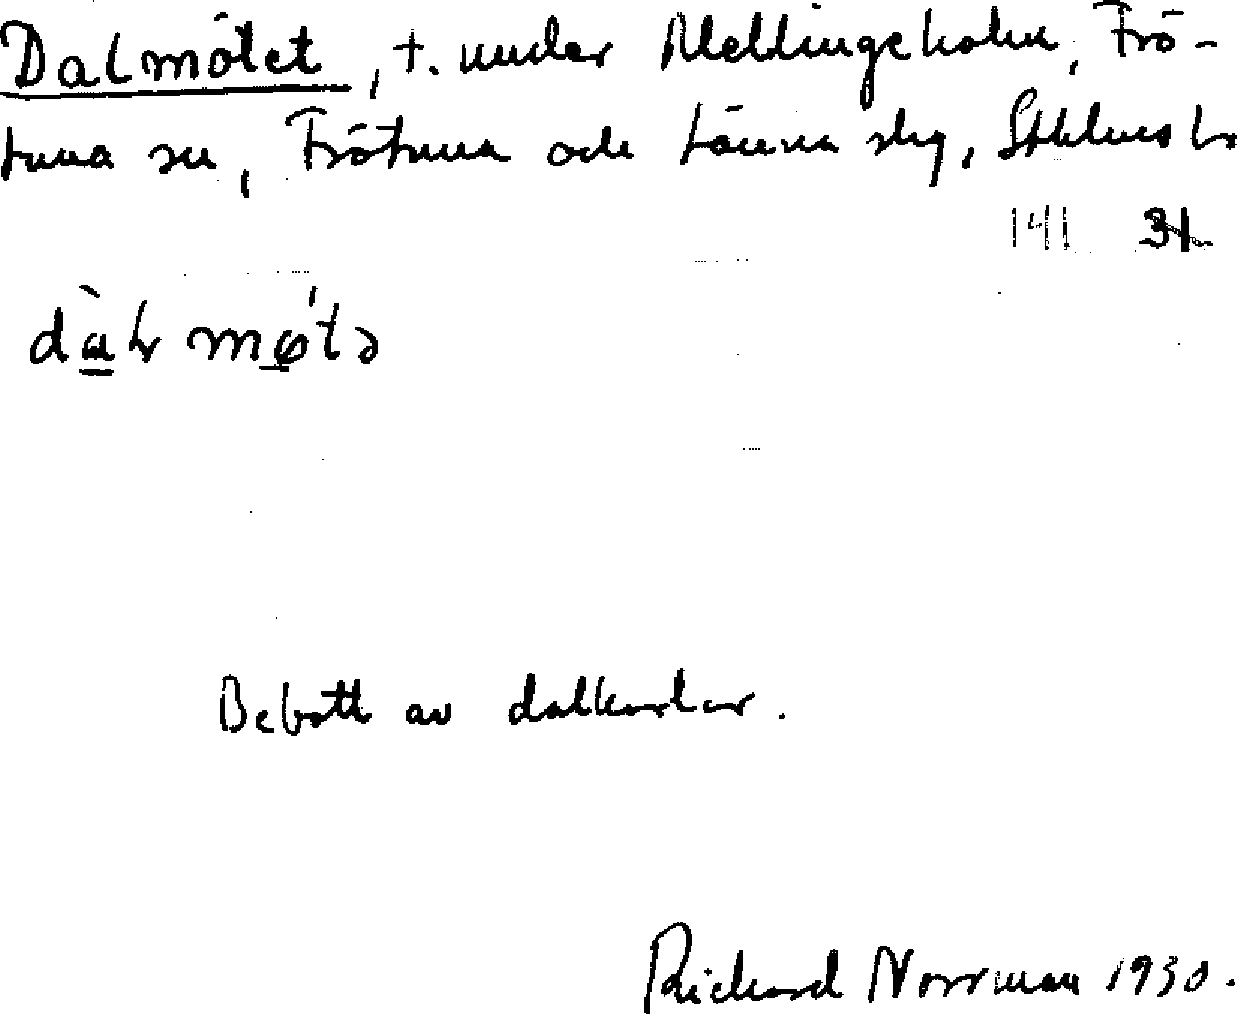 Dalmötet, t. under Mellingeholm, Frö-
tuna sn, Frötuna och Länna slg, Sthlms l.
141 31
dàlmø̀tə
Bebott av dalkarlar.
Richard Norrman 1930.